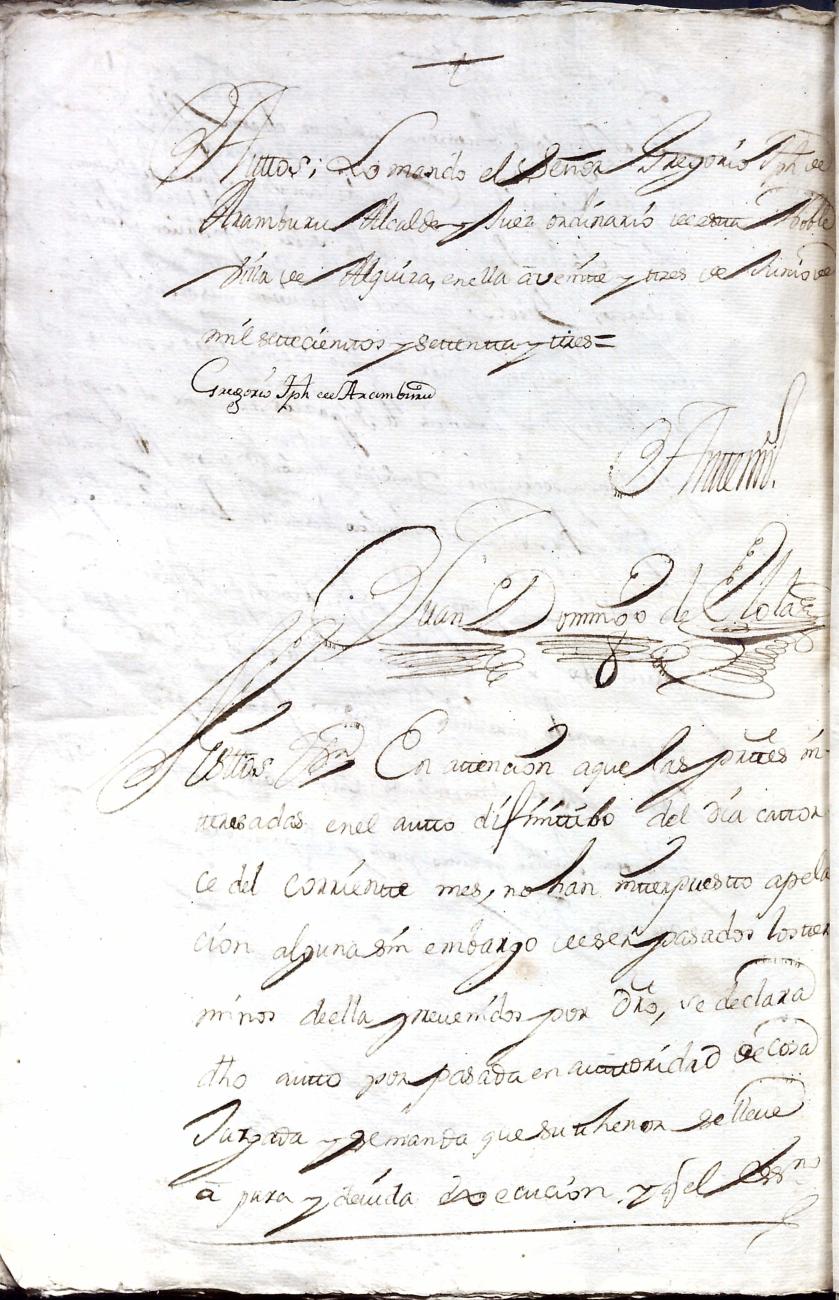 Auttos; Lo mando el Señor Gregorio Jph de
Aramburu Alcalde y Juez ordinario de esta Noble
Villa de Alquiza, en ella a veinte y tres de Junio de
mil settecienttos y settentta y ttres=
Gregorio Jph de Aramburu
Antemi
Juan Domingo de Elola
Visttos En attencion a que las parttes in-
tteresadas en el autto difinittibo del dia cattor
ce del corrientte mes, no han intterpuestto apela
cion alguna sin embargo de ser pasados los tter
minos de ella prevenidos por dro, se declara
dho autto por pasada en auttoridad de Cosa
Juzgada y se manda que su thenor se lleve
a pura y devida execucion, y qe el Essno